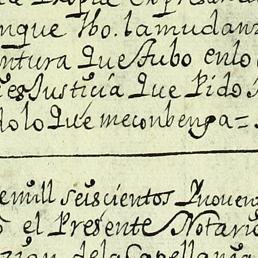 nque Ubo. la mudanz
ntura Que stubo enlo
es Justicia Que Pido
lo Que me conbenga =
emill seiscientos Nouen
el Presente Notari
de la Capellania